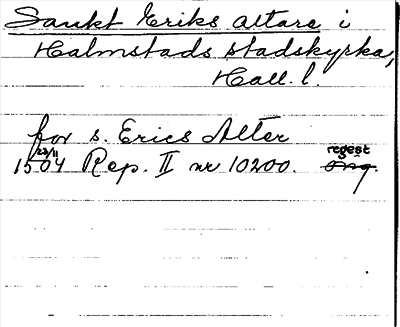 Sankt Eriks altare i
Halmstads stadskyrka,
Hall. l.
for s. Erics Alter
1504 23/11 Rep. II nr 10200. regest Orig.